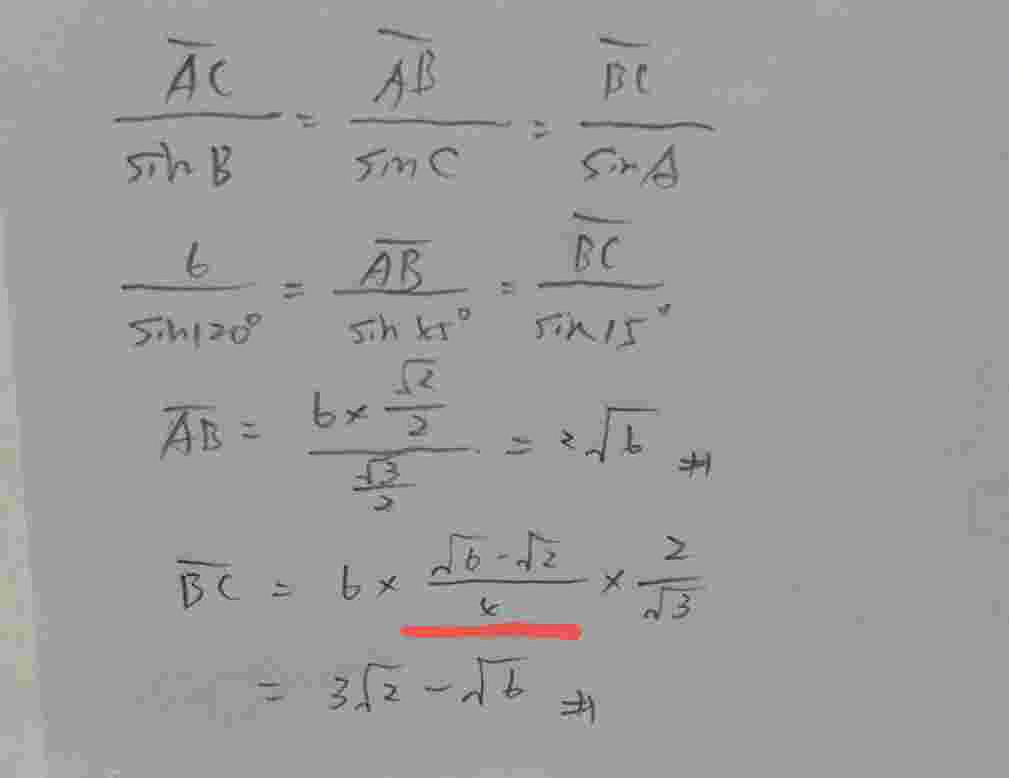 AC/sin B = AB/sin C = BC/sin A
6/sin120° = AB/sin 45° = BC/sin 15°
AB = (6 × √2/2)/(√3/2) = 2√6 #
BC = 6 × (√6-√2)/4 × 2/√3
= 3√2 - √6 #